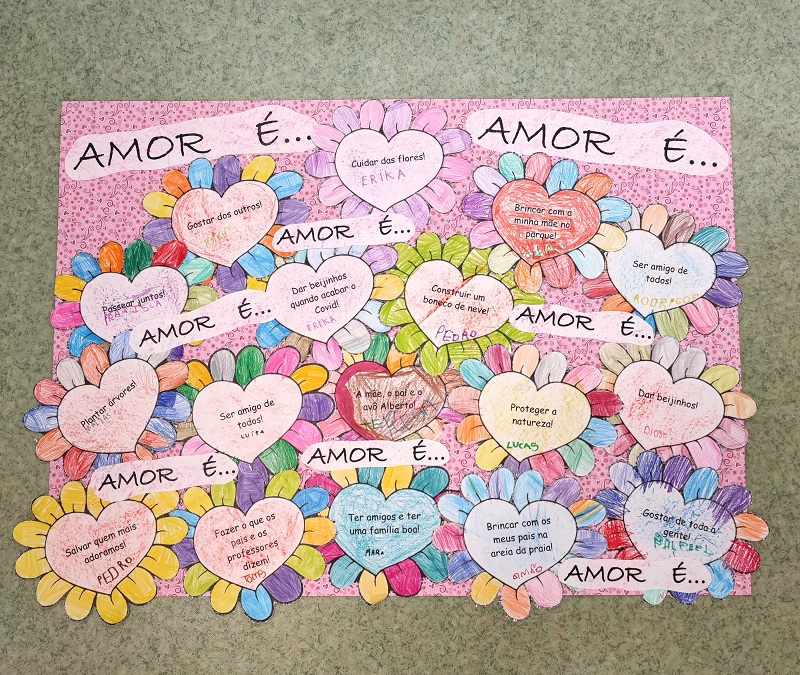 AMOR É...
AMOR É...
Cuidar das flores!
ERIKA
Gostar dos outros!
Brincar com a
minha mãe no
parque!
AMOR É...
Ser amigo de
todos!
RODRIGO
Passear juntos!
FRANCISCA
Dar beijinhos
quando acabar o
Covid!
ERIKA
Construir um
boneco de neve!
PEDRO
AMOR É...
AMOR É...
Plantar árvores!
Ser amigo de
todos!
LUÍSA
A mãe, o pai e o
avô Alberto!
Proteger a
natureza!
LUCAS
Dar beijinhos!
DIOGO
AMOR É...
AMOR É...
Salvar quem mais
adoramos!
PEDRO
Fazer o que os
pais e os
professores
dizem!
TOMÁS
Ter amigos e ter
uma família boa!
MARA
Brincar com os
meus pais na
areia da praia!
Gostar de toda a
gente!
RAFAEL
AMOR É...